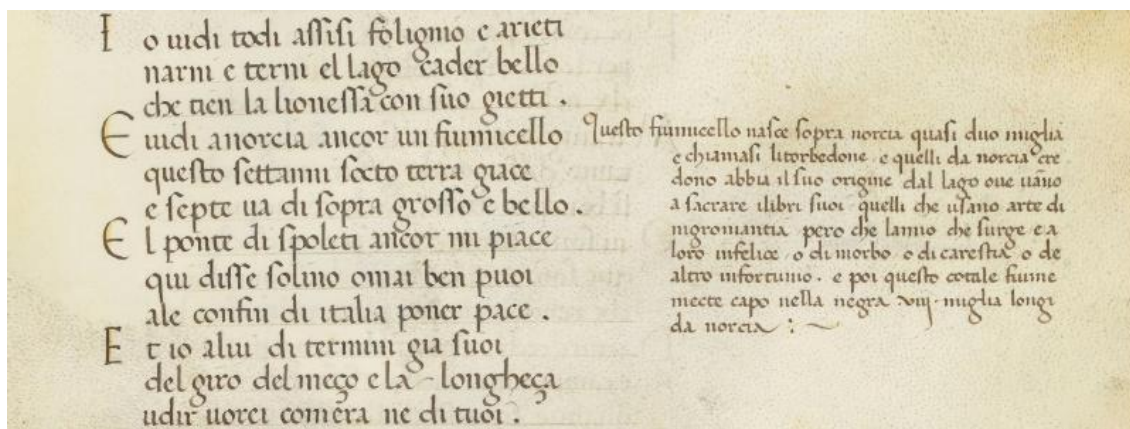 I o uidi todi assisi foligno e arieti
narni e terni el lago cader bello
che tien la lionessa con suo gietti .
E uidi anorcia ancor un fiumicello
questo settanni socto terra giace
e septe ua di sopra grosso e bello .
E l ponte di spoleti ancor mi piace
qui disse solino omai ben puoi
ale confin di italia poner pace .
E t io alui di termini gia suoi
del giro del meço e la longheça
udir uorei comera ne di tuoi .
Questo fiumicello nasce sopra norcia quasi duo miglia
e chiamasi litorbedone e quelli da norcia cre
dono abbia il suo origine dal lago oue uāno
a sacrare ilibri suoi quelli che usano arte di
nigromantia pero che lanno che surge e a
loro infelice o di morbo o di carestia o de
altro infortunio . e poi questo cotale fiume
mecte capo nella negra viij . miglia longi
da norcia :